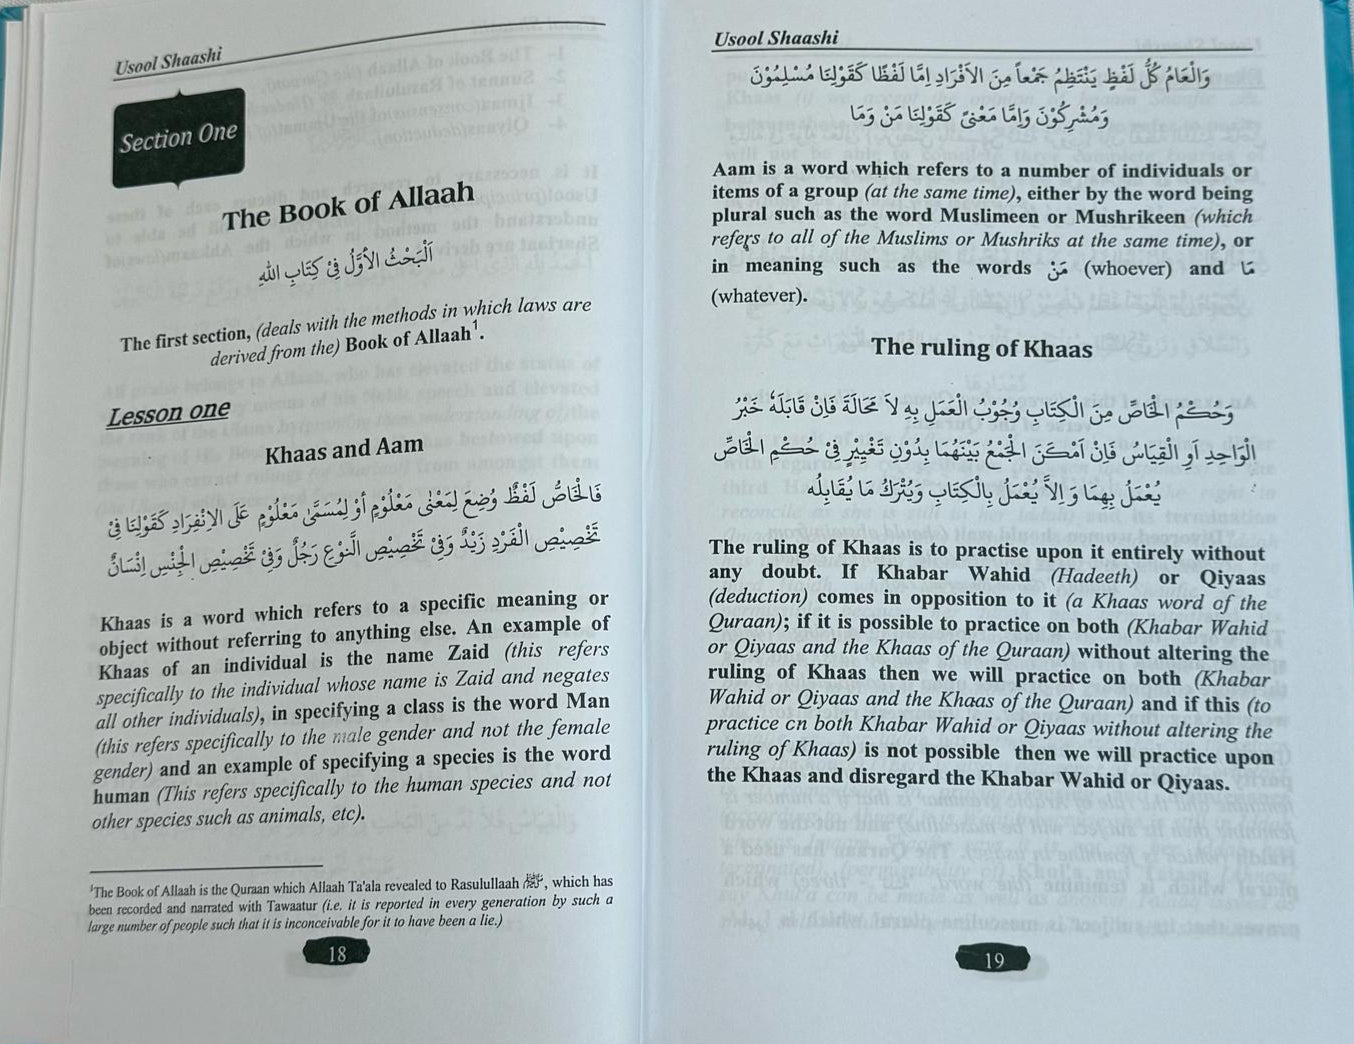 Usool Shaashi
Section One
The Book of Allaah
اَلْبَحْثُ الْأَوَّلُ فِيْ كِتَابِ اللهِ
The first section, (deals with the methods in which laws are
derived from the) Book of Allaah¹.
Lesson one
Khaas and Aam
فَالْخَاصُّ لَفْظٌ وُضِعَ لِمَعْنًى مَعْلُوْمٍ أَوْ لِمُسَمًّى مَعْلُوْمٍ عَلَى الْاِنْفِرَادِ كَقَوْلِنَا فِيْ
تَخْصِيْصِ الْفَرْدِ زَيْدٌ وَفِيْ تَخْصِيْصِ النَّوْعِ رَجُلٌ وَفِيْ تَخْصِيْصِ الْجِنْسِ اِنْسَانٌ
Khaas is a word which refers to a specific meaning or
object without referring to anything else. An example of
Khaas of an individual is the name Zaid (this refers
specifically to the individual whose name is Zaid and negates
all other individuals), in specifying a class is the word Man
(this refers specifically to the male gender and not the female
gender) and an example of specifying a species is the word
human (This refers specifically to the human species and not
other species such as animals, etc).
¹The Book of Allaah is the Quraan which Allaah Ta'ala revealed to Rasulullaah ﷺ, which has
been recorded and narrated with Tawaatur (i.e. it is reported in every generation by such a
large number of people such that it is inconceivable for it to have been a lie.)
18
Usool Shaashi
وَالْعَامُ كُلُّ لَفْظٍ يَنْتَظِمُ جَمْعاً مِنَ الْأَفْرَادِ اِمَّا لَفْظًا كَقَوْلِنَا مُسْلِمُوْنَ
وَمُشْرِكُوْنَ وَاِمَّا مَعْنىً كَقَوْلِنَا مَنْ وَمَا
Aam is a word which refers to a number of individuals or
items of a group (at the same time), either by the word being
plural such as the word Muslimeen or Mushrikeen (which
refers to all of the Muslims or Mushriks at the same time), or
in meaning such as the words مَنْ (whoever) and مَا
(whatever).
The ruling of Khaas
وَحُكْمُ الْخَاصِّ مِنَ الْكِتَابِ وُجُوْبُ الْعَمَلِ بِهِ لاَ مَحَالَةَ فَاِنْ قَابَلَهٗ خَبْرُ
الْوَاحِدِ اَوِ الْقِيَاسُ فَاِنْ اَمْكَنَ الْجَمْعُ بَيْنَهُمَا بِدُوْنِ تَغْيِيْرٍ فِيْ حُكْمِ الْخَاصِّ
يُعْمَلُ بِهِمَا وَ اِلاَّ يُعْمَلُ بِالْكِتَابِ وَيُتْرَكُ مَا يُقَابِلُه
The ruling of Khaas is to practise upon it entirely without
any doubt. If Khabar Wahid (Hadeeth) or Qiyaas
(deduction) comes in opposition to it (a Khaas word of the
Quraan); if it is possible to practice on both (Khabar Wahid
or Qiyaas and the Khaas of the Quraan) without altering the
ruling of Khaas then we will practice on both (Khabar
Wahid or Qiyaas and the Khaas of the Quraan) and if this (to
practice on both Khabar Wahid or Qiyaas without altering the
ruling of Khaas) is not possible then we will practice upon
the Khaas and disregard the Khabar Wahid or Qiyaas.
19